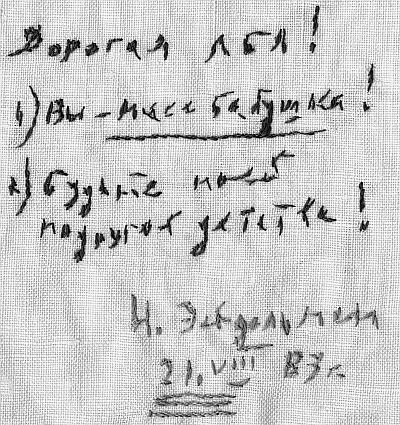 Дорогая ЛБЛ!
1) Вы – мисс бабушка!
2) будьте моей
подругой детства!
Н. Эйдельман
21.VIII 83 г.